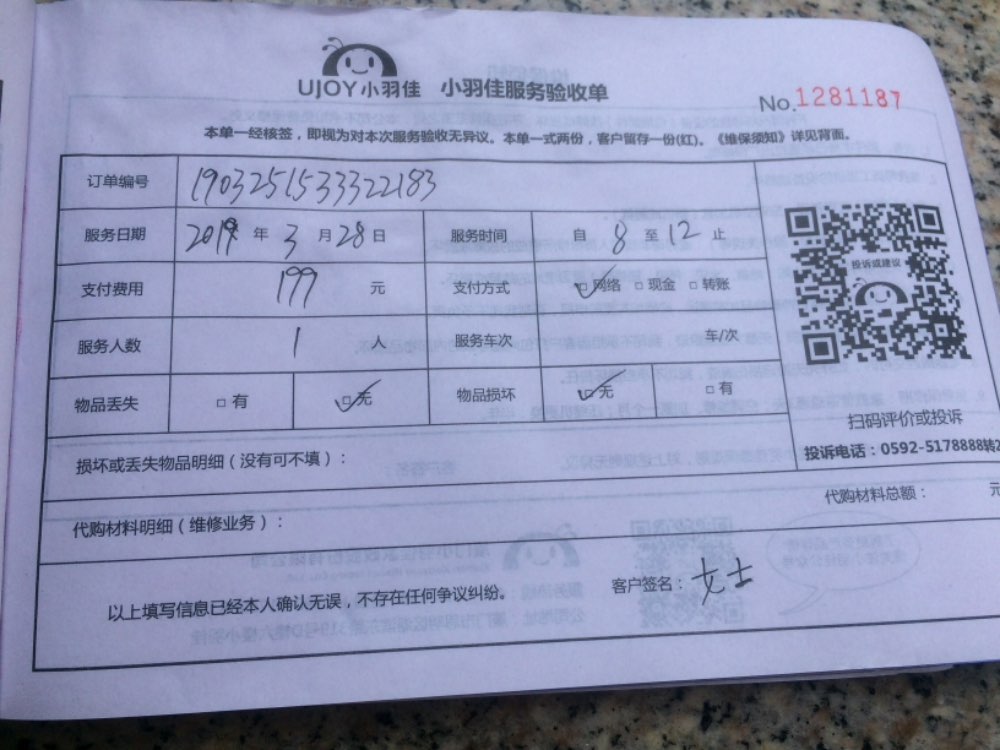 UJOY小羽佳 小羽佳服务验收单
No.1281187
本单一经核签，即视为对本次服务验收无异议。本单一式两份，客户留存一份(红)。《维保须知》详见背面。
订单编号 1903251533322183
服务日期 2019 年 3 月 28 日 服务时间 自 8 至 12 止
支付费用 199 元 支付方式 ☑网络 □现金 □转账
服务人数 1 人 服务车次 车/次
物品丢失 □有 ☑无 物品损坏 ☑无 □有
投诉或建议
扫码评价或投诉
投诉电话：0592-5178888转2
损坏或丢失物品明细（没有可不填）：
代购材料明细（维修业务）： 代购材料总额： 元
以上填写信息已经本人确认无误，不存在任何争议纠纷。 客户签名：女士